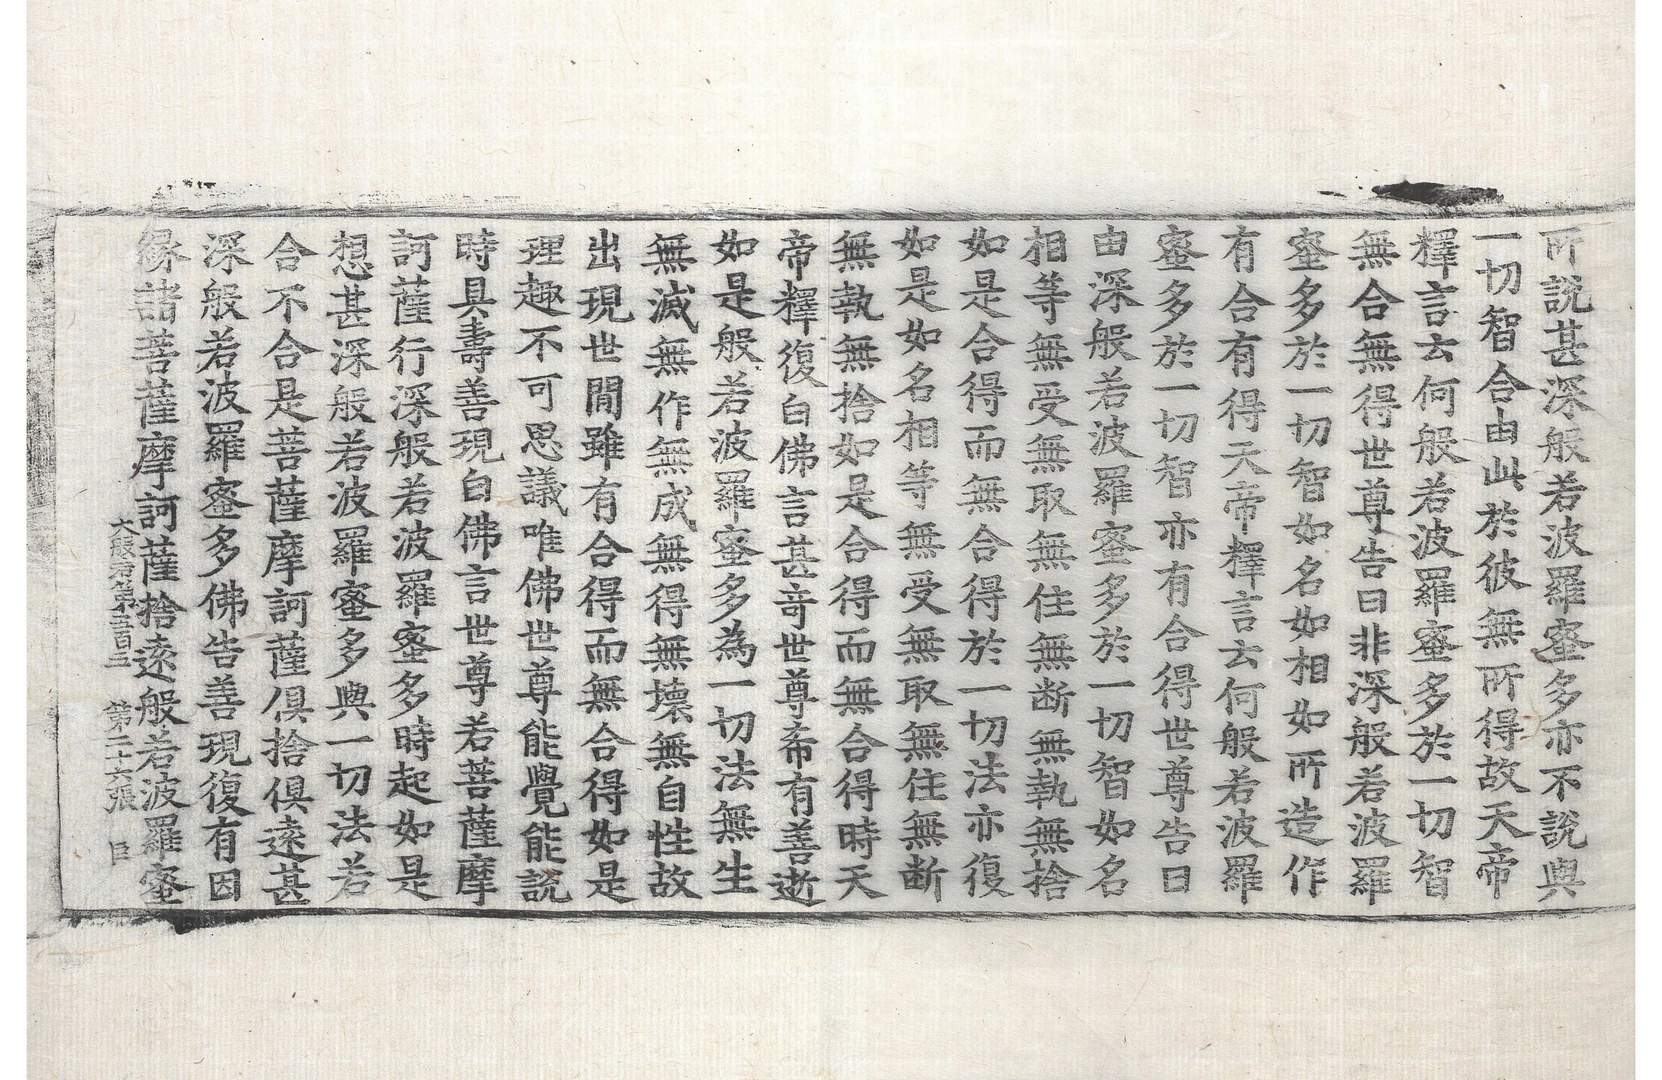 所說甚深般若波羅蜜多亦不說與
一切智合由此於彼無所得故天帝
釋言云何般若波羅蜜多於一切智
無合無得世尊告曰非深般若波羅
蜜多於一切智如名如相如所造作
有合有得天帝釋言云何般若波羅
蜜多於一切智亦有合得世尊告曰
由深般若波羅蜜多於一切智如名
相等無受無取無住無断無執無捨
如是合得而無合得於一切法亦復
如是如名相等無受無取無住無断
無執無捨如是合得而無合得時天
帝釋復白佛言甚奇世尊希有善逝
如是般若波羅蜜多為一切法無生
無滅無作無成無得無壞無自性故
出現世間雖有合得而無合得如是
理趣不可思議唯佛世尊能覺能說
時具壽善現白佛言世尊若菩薩摩
訶薩行深般若波羅蜜多時起如是
想甚深般若波羅蜜多與一切法若
合不合是菩薩摩訶薩俱捨俱遠甚
深般若波羅蜜多佛告善現復有因
緣諸菩薩摩訶薩捨遠般若波羅蜜
大般若第五百三 第二十六張 臣